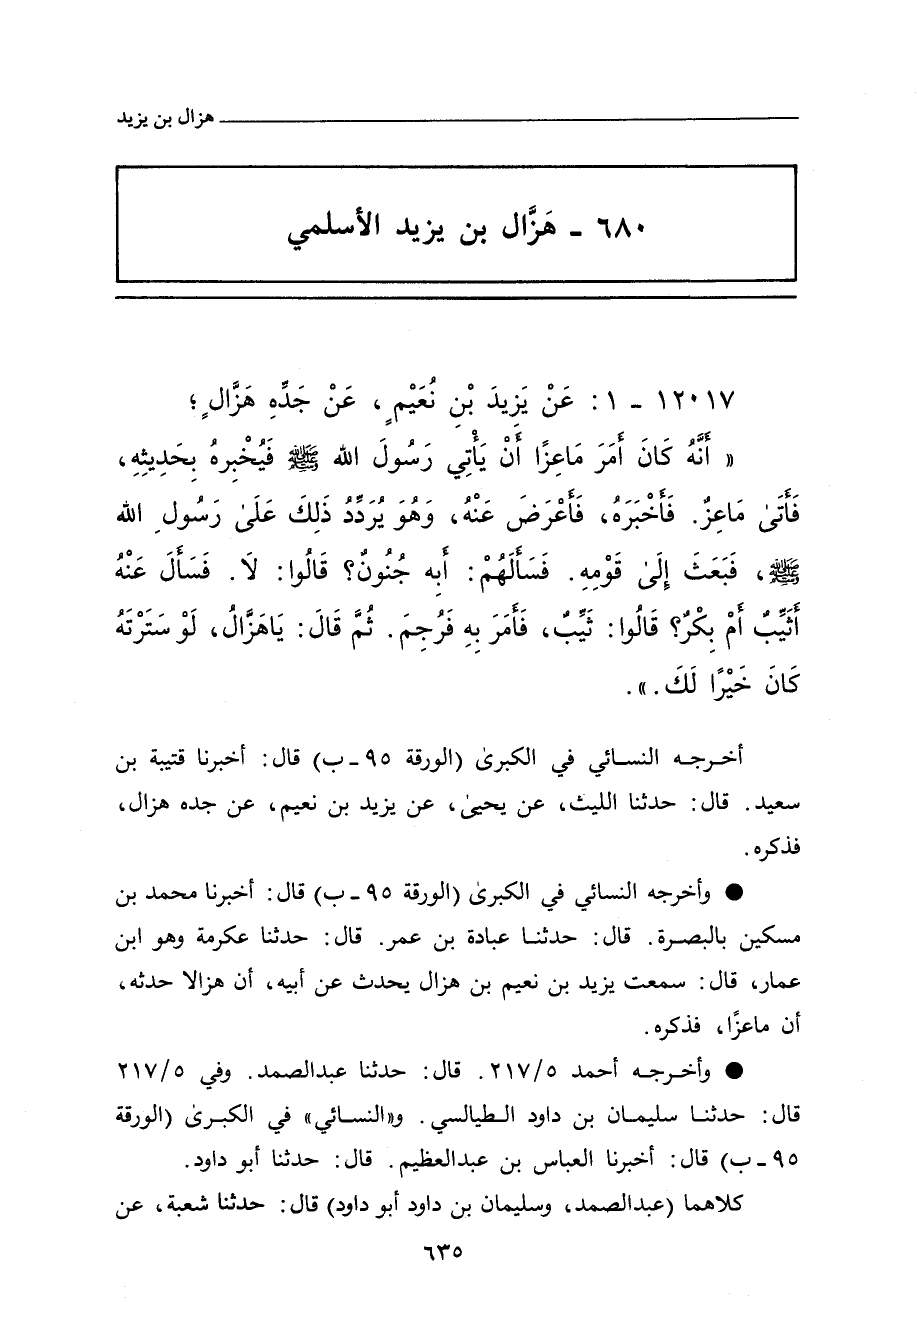 هزال بن يزيد
٦٨٠ - هَزَّال بن يزيد الأسلمي
١٢٠١٧ - ١ : عَنْ يَزِيدَ بْنِ نُعَيْمٍ، عَنْ جَدِّهِ هَزَّالٍ؛
« أَنَّهُ كَانَ أَمَرَ مَاعِزًا أَنْ يَأْتِي رَسُولَ الله ﷺ فَيُخْبِرهُ بِحَدِيثِهِ،
فَأَتَىٰ مَاعِزٌ. فَأَخْبَرَهُ، فَأَعْرَضَ عَنْهُ، وَهُوَ يُرَدِّدُ ذَلِكَ عَلَىٰ رَسُولِ الله
ﷺ، فَبَعَثَ إِلَىٰ قَوْمِهِ. فَسَأَلَهُمْ: أَبِه جُنُونٌ؟ قَالُوا: لَا. فَسَأَلَ عَنْهُ
أَثَيِّبٌ أَمْ بِكْرٌ؟ قَالُوا: ثَيِّبٌ، فَأَمَرَ بِهِ فَرُجِمَ. ثُمَّ قَالَ: يَاهَزَّالُ، لَوْ سَتَرْتَهُ
كَانَ خَيْرًا لَكَ. ».
أخرجه النسائي في الكبرىٰ (الورقة ٩٥ - ب) قال: أخبرنا قتيبة بن
سعيد. قال: حدثنا الليث، عن يحيىٰ، عن يزيد بن نعيم، عن جده هزال،
فذكره.
● وأخرجه النسائي في الكبرىٰ (الورقة ٩٥ - ب) قال: أخبرنا محمد بن
مسكين بالبصرة. قال: حدثنا عبادة بن عمر. قال: حدثنا عكرمة وهو ابن
عمار، قال: سمعت يزيد بن نعيم بن هزال يحدث عن أبيه، أن هزالا حدثه،
أن ماعزًا، فذكره.
● وأخرجه أحمد ٢١٧/٥. قال: حدثنا عبدالصمد. وفي ٢١٧/٥
قال: حدثنا سليمان بن داود الطيالسي. و«النسائي» في الكبرىٰ (الورقة
٩٥ - ب) قال: أخبرنا العباس بن عبدالعظيم. قال: حدثنا أبو داود.
كلاهما (عبدالصمد، وسليمان بن داود أبو داود) قال: حدثنا شعبة، عن
٦٣٥